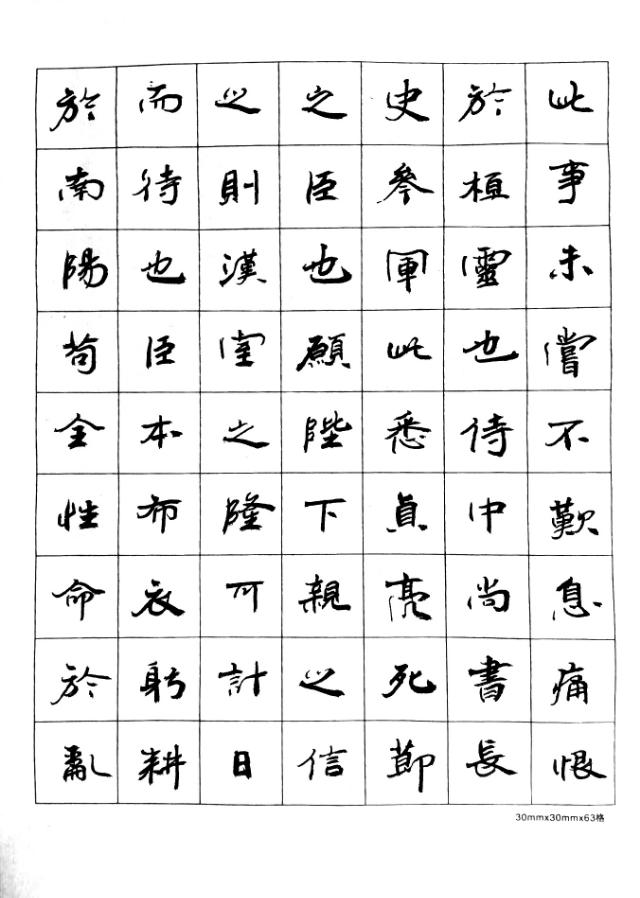 此事未嘗不歎息痛恨
於桓靈也侍中尚書長
史參軍此悉貞亮死節
之臣也願陛下親之信
之則漢室之隆可計日
而待也臣本布衣躬耕
於南陽苟全性命於亂
30mmx30mmx63格